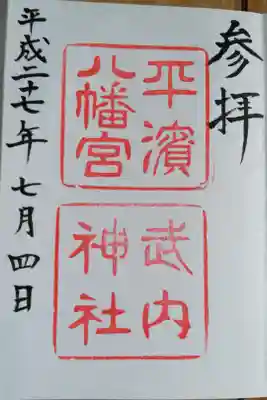 参拝
平濱
八幡宮
武内
神社
平成二十七年七月四日